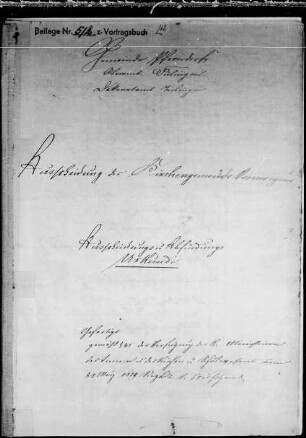 Beilage Nr. 5/6 z. Vertragsbuch
Gemeinde Pfrondorf
Oberamt Tübingen
Dekanatamt Tübingen
Ausscheidung des Kirchengemeinde
Ausscheidungs u. Abfindungs
Urkunde
Gefertigt
gemäß der Verfügung der K. Ministerien
des Innern u. des Kirchen u. Schulwesens vom